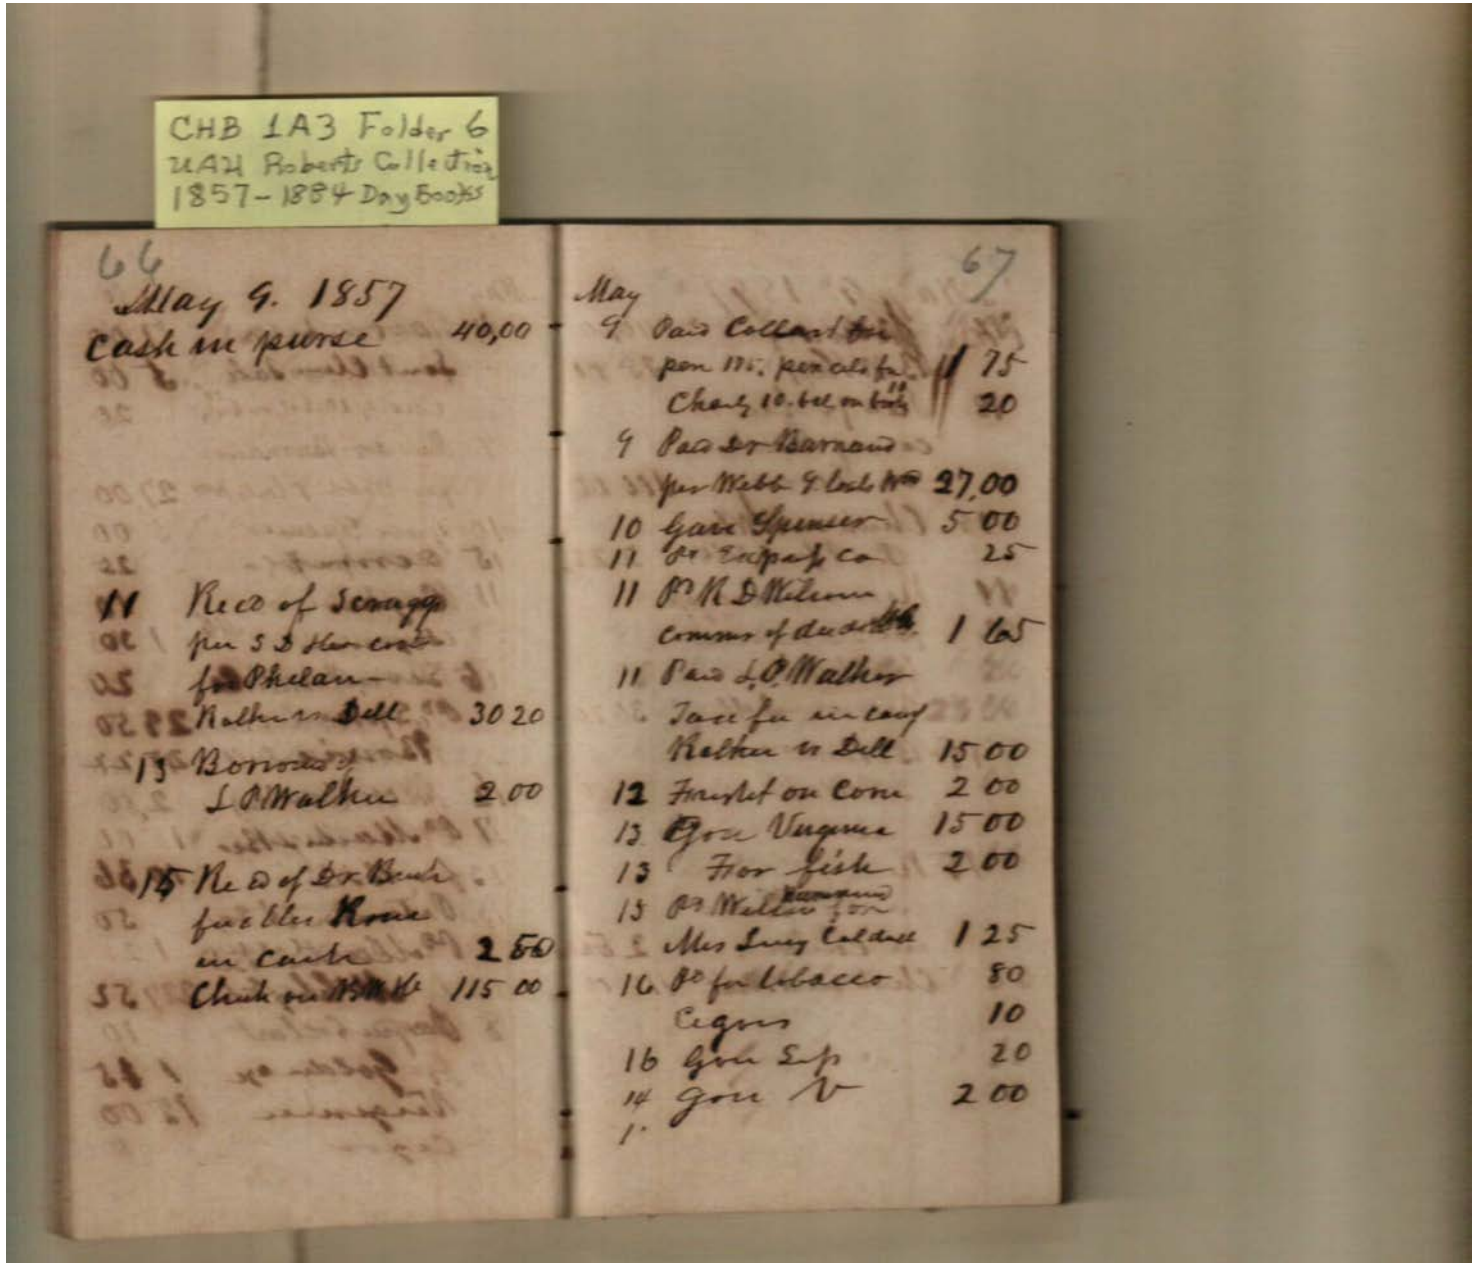 CHB 1A3 Folder 6
UAH Roberts Collection
1857-1884 Day Books
66
May 9. 1857
Cash in purse 40,00
11 Recd of Scruggs
per S D
for Phelan
vs Dell 30 20
13 Borrowed
L P Walker 2 00
15 Recd of Dr
in cash 2 50
Check on 115 00
67
May
9 Paid
pen 175. pencils for 1 75
Charly 10. 20
9 Paid Dr Barnard
per Webb & 27,00
10 Gave Spenser 5 00
11 Pd Express co 25
11 Pd R D Wilson
comms of deeds 1 65
11 Paid L. P. Walker
Tax fee in case
vs Dell 15 00
12 Freight on Corn 2 00
13 Gave Virginia 15 00
13 For fish 2 00
15 Pd for
Mrs 1 25
16 Pd for tobacco 80
Cigars 10
16 Gave 20
14 Gave V 2 00
1